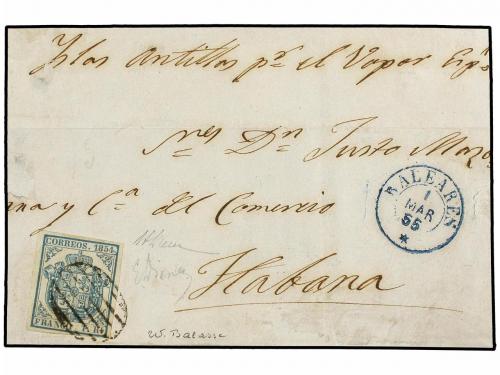 Islas Antillas pr. el Vapor Esps
nes Dn Justo Mazo
ana y Ca del Comercio
Habana
BALEARES
1
MAR
55
CORREOS. 1854.
FRANCO
W. Balasse